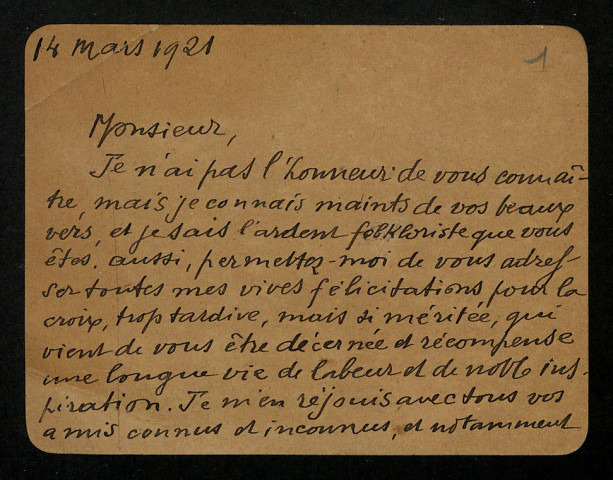 14 mars 1921
1
Monsieur,
Je n'ai pas l'honneur de vous connaî-
tre, mais je connais maints de vos beaux
vers, et je sais l'ardent folkloriste que vous
êtes. aussi, permettez-moi de vous adres-
ser toutes mes vives félicitations pour la
croix, trop tardive, mais si méritée, qui
vient de vous être décernée et récompense
une longue vie de labeur et de noble ins-
piration. Je m'en réjouis avec tous vos
amis connus et inconnus, et notamment